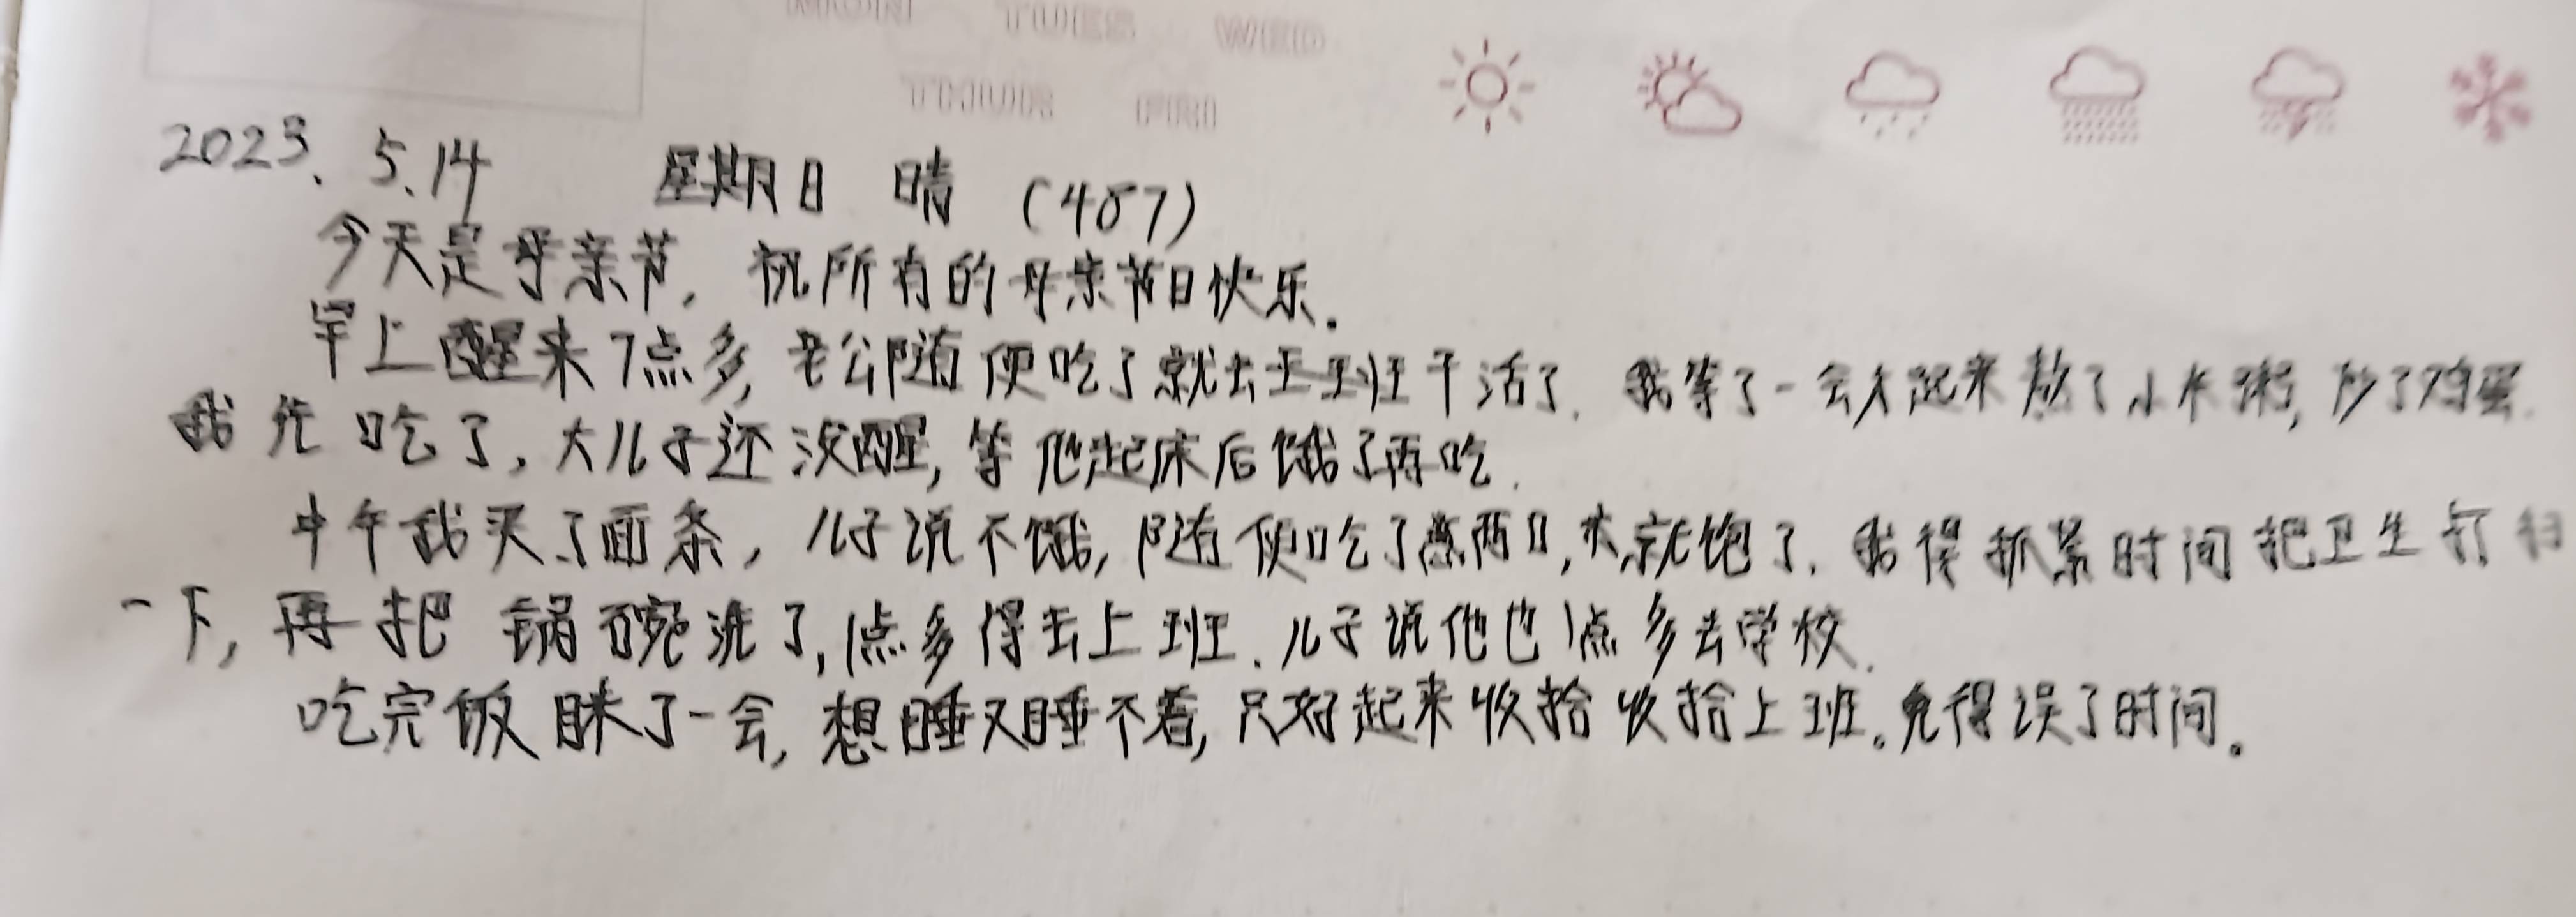 MON TUES WED
THUR FRI
2023、5.14 星期日 晴 (487)
今天是母亲节，祝所有的母亲节日快乐.
早上醒来7点多,老公随便吃了就去干活了. 我等了一会儿起来熬了小米粥,炒了鸡蛋.
我先吃了,大儿子还没醒,等他起床后饿了再吃.
中午我买了面条,儿子说不饿,随便吃了两口,就饱了.我得抓紧时间把卫生打扫
一下,再把锅碗洗了,1点多得去上班.儿子说他也1点多去学校.
吃完饭眯了一会,想睡又睡不着,只好起来收拾收拾上班。免得误了时间。